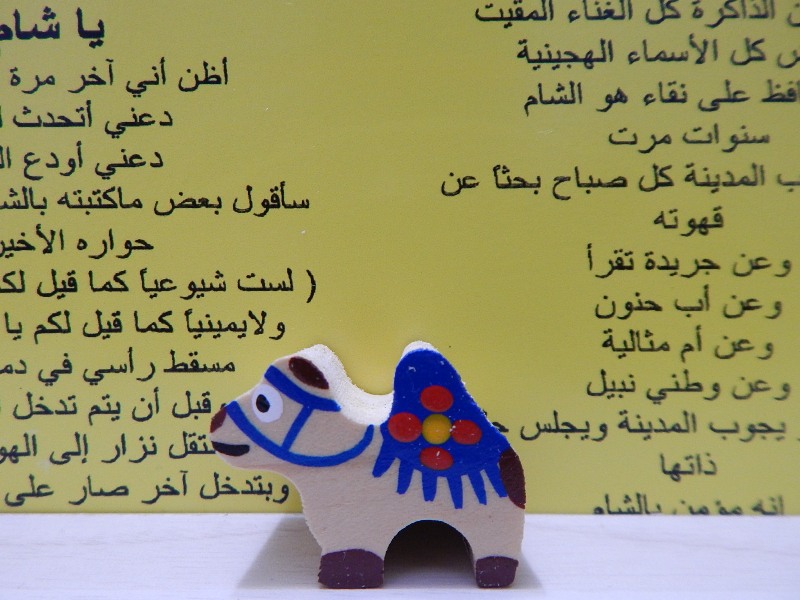 يا شام
أظن أني آخر مرة
دعني أتحدث
دعني أودع
سأقول بعض ماكتبته
حواره
( لست شيوعياً كما قيل
ولايمينياً كما قيل لكم يا
مسقط رأسي في
قبل أن يتم تدخل
نزار إلى
وبتدخل آخر صار على
الذاكرة كل الغناء المقيت
كل الأسماء الهجينية
على نقاء هو الشام
سنوات مرت
المدينة كل صباح بحثاً عن
قهوته
وعن جريدة تقرأ
وعن أب حنون
وعن أم مثالية
وعن وطني نبيل
يجوب المدينة ويجلس
ذاتها
إنه مؤمن بالشام